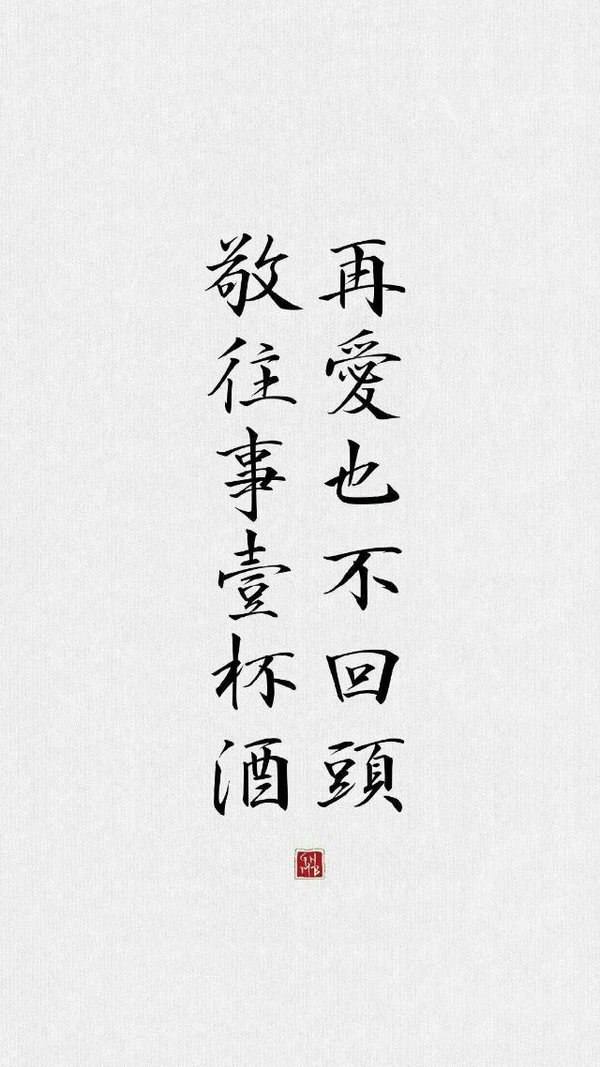 再愛也不回頭
敬往事壹杯酒
GN
MB